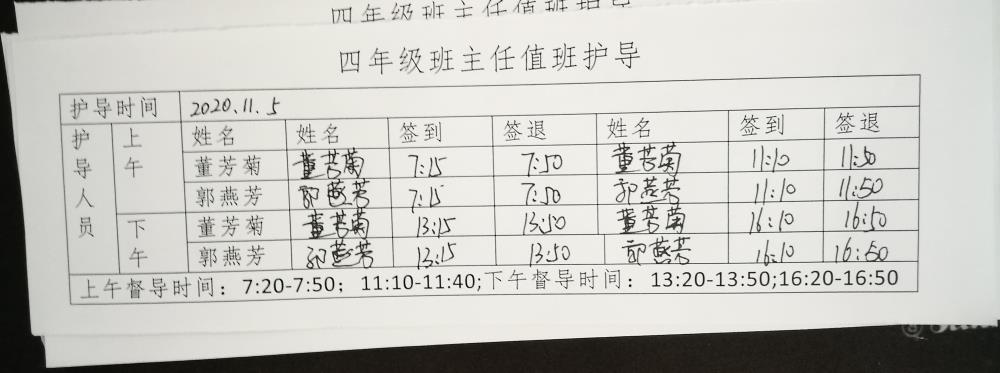 四年级班主任值班护导
四年级班主任值班护导
护导时间 2020.11.5
护导人员 上午 姓名 姓名 签到 签退 姓名 签到 签退
董芳菊 董芳菊 7:15 7:50 董芳菊 11:10 11:50
郭燕芳 郭燕芳 7:15 7:50 郭燕芳 11:10 11:50
下午 董芳菊 董芳菊 13:15 13:50 董芳菊 16:10 16:50
郭燕芳 郭燕芳 13:15 13:50 郭燕芳 16:10 16:50
上午督导时间：7:20-7:50；11:10-11:40;下午督导时间：13:20-13:50;16:20-16:50